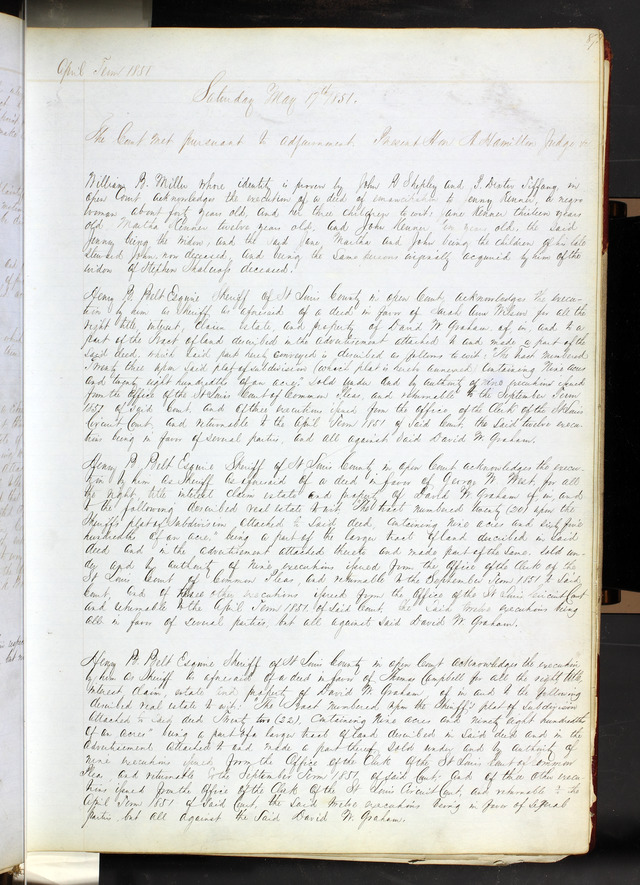 April Term 1851
Saturday May 17th 1851.
The Court met pursuant to adjournment. Present Hon. A Hamilton Judge
William B. Miller whose identity is proven by John R Shepley and P. Dexter Tiffany in
open Court acknowledges the execution of a deed of emancipation to Jenny Kenner, a negro
woman about forty years old, and her three children to wit: Jane Kenner thirteen years
old Martha Kenner twelve years old, and John Kenner ten years old, the said
Jenny being the widow, and the said Jane, Martha and John being the children of his late
John, now deceased, and being the same persons originally acquired by him of the
widow of Stephen deceased.
Henry B. Belt Esquire Sheriff of St Louis County in open Court, acknowledges the execu-
tion by him as Sheriff as aforesaid of a deed in favor of Ann Wilson for all the
right title, interest, claim estate, and property of David W. Graham, of in, and to a
part of the tract of land described in the advertisement attached to and made a part of the
said deed, which said part hereby conveyed is described as follows to wit: "The tract numbered
Twenty three upon said plat of subdivision (which plat is hereto annexed) Containing Nine acres
and twenty eight hundredths of an acre;" Sold under and by authority of nine executions issued
from the Office of the St Louis Court of Common Pleas, and returnable to the September Term
1851 of said Court. And of three executions issued from the office of the Clerk of the St Louis
Circuit Court, and returnable to the April Term 1851 of said Court, the said twelve execu-
tions being in favor of several parties, and all against said David W. Graham.
Henry B. Belt Esquire Sheriff of St Louis County in open Court acknowledges the execu-
tion by him as Sheriff as aforesaid of a deed in favor of George W. West for all
the right, title interest claim estate and property of David W. Graham of in, and
to the following described real estate to wit "The tract numbered twenty (20) upon the
Sheriff's plat of Subdivision attached to said deed, Containing Nine acres and sixty five
hundredths of an acre" being a part of the larger tract of land described in said
deed and in the advertisement attached thereto and made part of the same. Sold un-
der and by authority of Nine executions issued from the Office of the Clerk of the
St Louis Court of Common Pleas, and returnable to the September Term 1851 of said
Court, And of three other executions issued from the Office of the St Louis Circuit Court
and returnable to the April Term 1851 of said Court, the said twelve executions being
all in favor of several parties, but all against said David W. Graham.
Henry B. Belt Esquire Sheriff of St Louis County in open Court acknowledges the execution
by him as Sheriff as aforesaid of a deed in favor of Thomas Campbell for all the right, title
interest, claim, estate and property of David W. Graham, of in and to the following
described real estate to wit: "The Tract numbered upon the Sheriff's plat of Subdivision
attached to said deed Twenty two (22), Containing Nine acres and Ninety eight hundredths
of an acre" being a part of a larger tract of land described in said deed and in the
advertisement attached to and made a part thereof, Sold under and by authority of
nine executions issued from the Office of the Clerk of the St Louis Court of Common
Pleas and returnable to the September Term 1851, of said Court; And of three other execu-
tions issued from the Office of the Clerk of the St Louis Circuit Court, and returnable to the
April Term 1851 of said Court, the said twelve executions being in favor of several
parties, but all against the said David W. Graham.